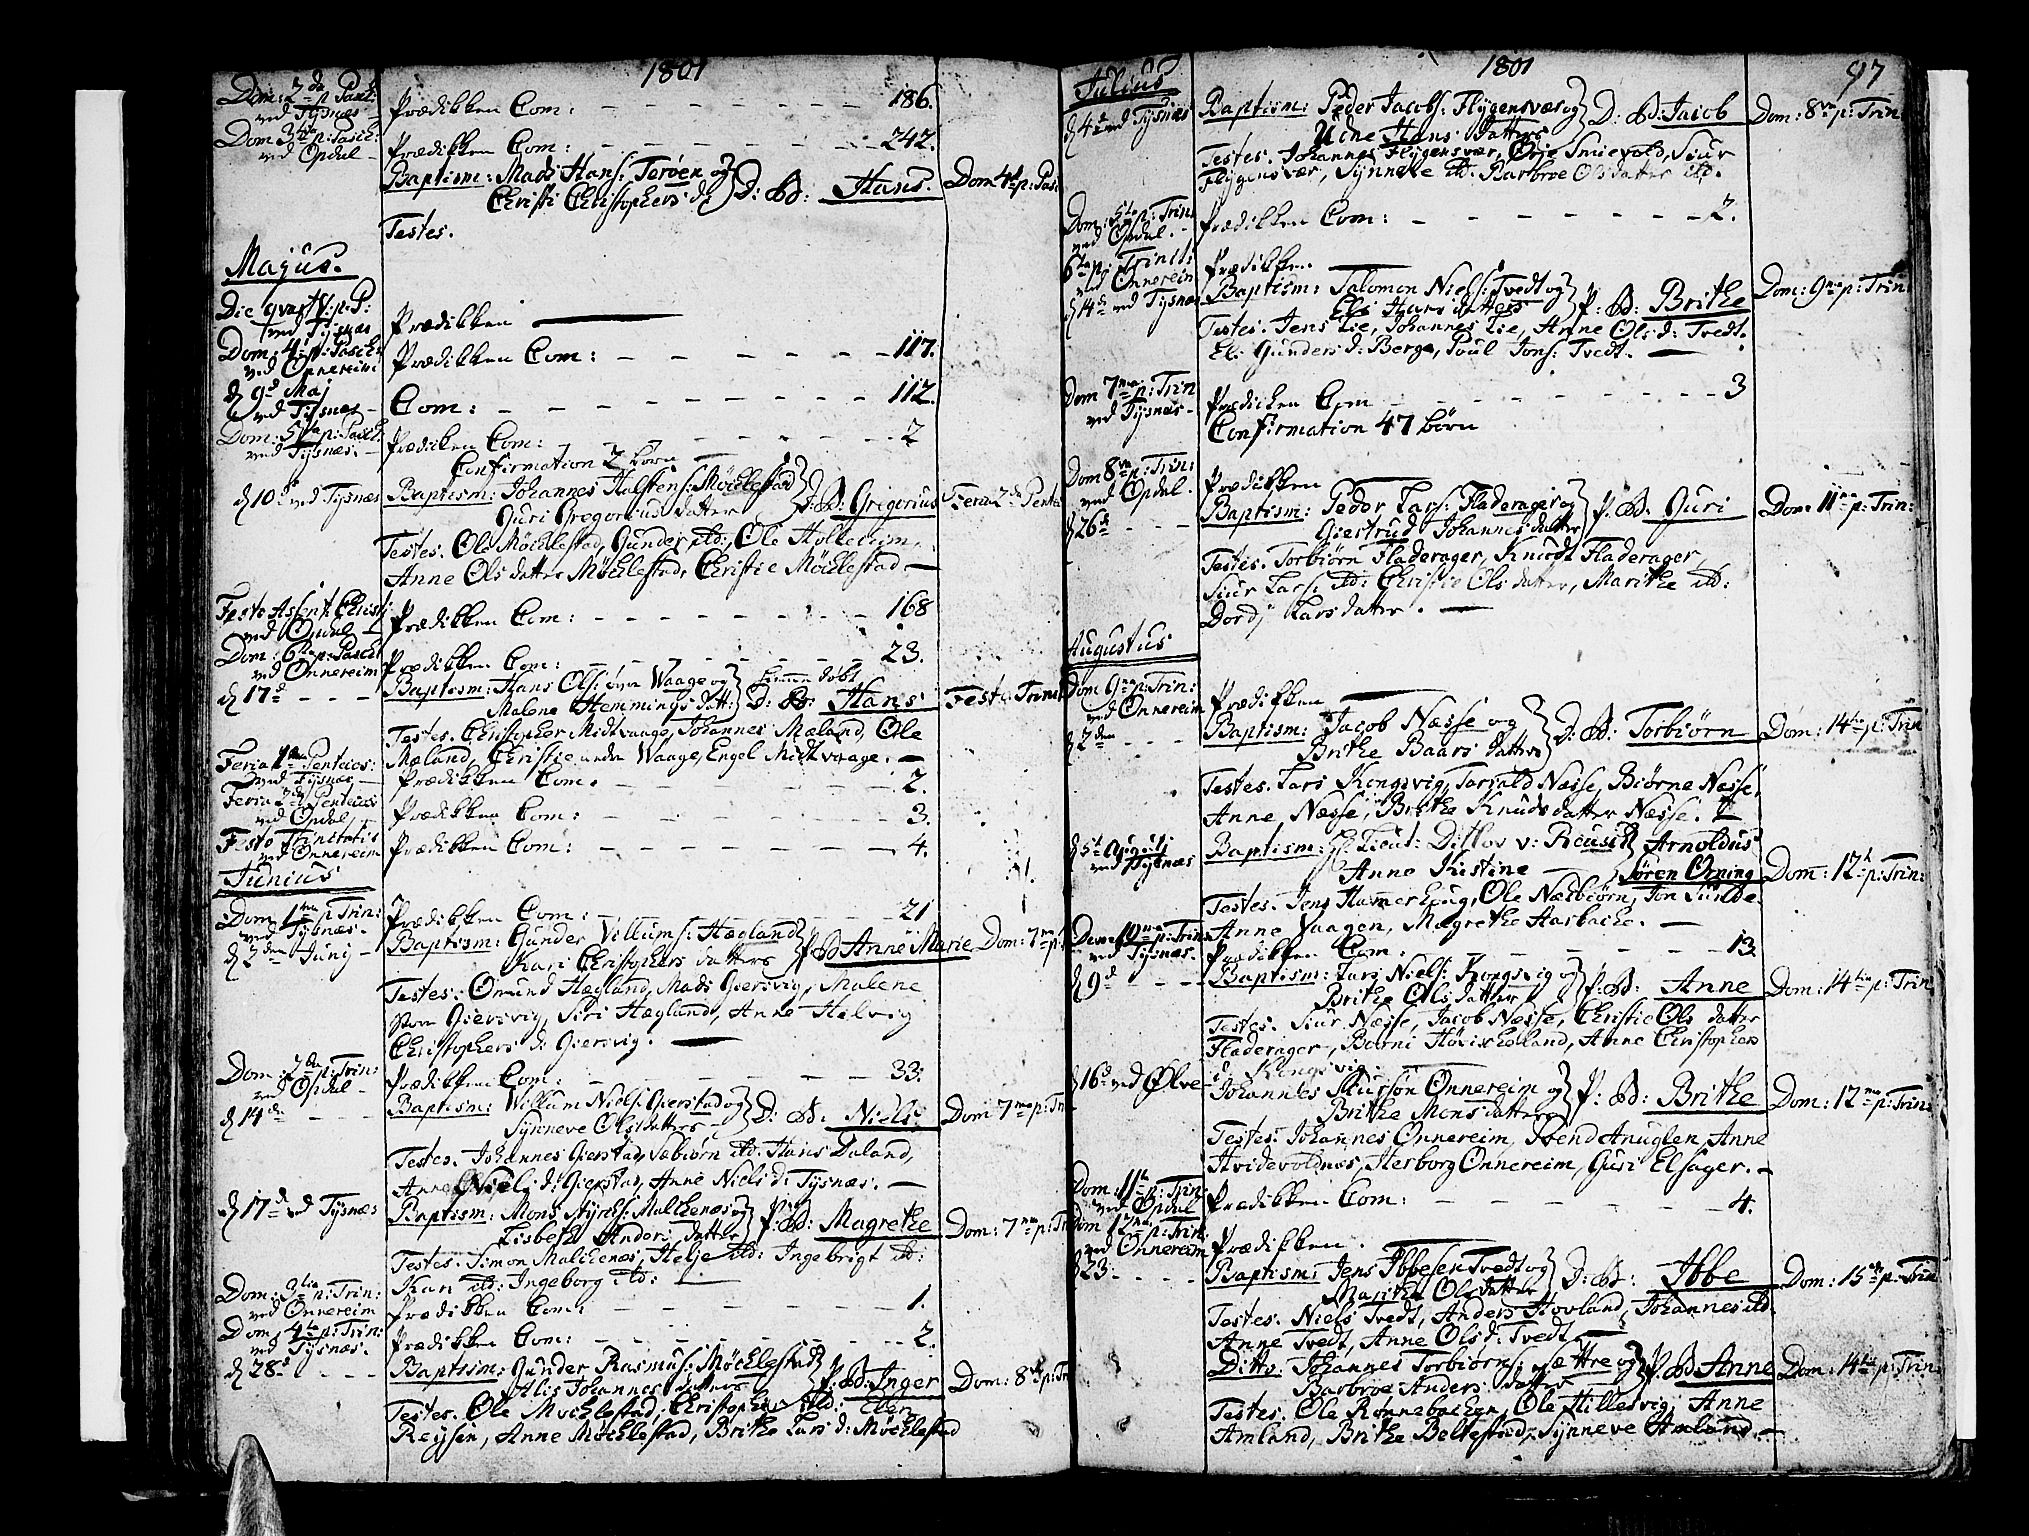 1801
Dom: 2da p: Pasch:
ved Tysnæs
Prædikken Com: 186.
Dom 3tia p: Pasch:
ved Opdal
Prædikken Com: 242.
Baptism: Mads Hans: Terøen og
Christi Christophers d: D: B: Hans. Dom 4ta p: Pasc
Testes.
Majus.
ved Tysnæs
Prædikken
Dom: 4ta p: Pasch:
ved Onnereim
Prædikken Com: 117.
d 9d Maj
ved Tysnæs
Com: 112.
Dom: 5ta p: Pasch:
ved Tysnæs
Prædikken Com: 2
Confirmation 2 børn
d 10d ved Tysnæs
Baptism: Johannes Halstens: Møchlestad
Guri Gregorius datter D: B: Grigorius Feria 2da Pente
Testes. Ole Møchlestad, Gunder ibd:, Ole Holleeim,
Anne Ols datter Møchlestad, Christie Møchlestad
Festo Assent: Christi
ved Opdal
Prædikken Com: 168
Dom: 6ta p: Pasch:
ved Onnereim
Prædikken Com: 23.
d 17d
Baptism: Hans Ols: øvre Waage og
Malene Hemmings datt: D: B: Hans Festo Trinit
Testes. Christopher Midtvaage, Johannes Mæland, Ole
Mæland, Christie neden Waage, Engel Midtvaage.
Feria 1ma Pentecos:
ved Tysnæs
Prædikken Com. 2.
Feria 2da Pentecos
ved Opdal
Prædikken Com: 3.
Festo Trinitatis
ved Onnereim
Prædikken Com: 4.
Junius
Dom 1ma p: Trin:
ved Tysnæs.
Prædikken Com: 21
d 3den Junij
Baptism: Gunder Villums: Hægland
Kari Christophers datter P: B: Anne Marie Dom: 7ma p:
Testes. Omund Hægland, Mads Giersvig, Malene
Giersvig, Siri Hægland, Anne Helvig
Christophers d: Giersvig.
Dom: 2da p: Trin:
ved Opdal
Prædikken Com: 33.
d 14de
Baptism: Willum Niels: Gierstad og
Synneve Ols datter D: B: Niels. Dom 7ma p: Tri
Testes. Johannes Gierstad, Sæbiørn ibd: Hans Daland,
Anne Niels d: Gierstad, Anne Niels d: Tysnæs.
d 17d ved Tysnæs
Baptism: Mons Styrks: Malkenæs og
Lisbeth Anders datter P: B: Magrethe Dom: 7ma p: Tr
Testes. Simon Malchenæs, Helje ibd: Ingebrigt ib:
Kari ib: Ingeborg ibd:
Dom: 3tia p: Trin:
ved Onnereim
Prædikken Com: 1.
Dom 4ta p: Trin:
ved Tysnæs.
Prædikken Com: 2.
d 28d
Baptism: Gunder Rasmus: Møchlestad
Alis Johannes datter P: B: Inger Dom: 8va p: Tr
Testes. Ole Møchlestad, Christopher ibd: Eber
Reysen, Anne Møchlestad, Brithe Lars d: Møchlestad
1801 97
Julius
d 4d ved Tysnæs
Baptism: Peder Jacobs: Flygensvær og
Hans datter D: B: Jacob Dom: 8va p: Trin:
Testes. Johannes Flygensvær, Brie Smievold, Siur
Flygensvær, Synneve ibd: Barbroe Olsdatter ibd.
Dom: 5ta p: Trin:
ved Opdal.
Prædikken Com: 2.
6ta p: Trinit:
ved Onnereim
Prædikken.
d 14d ved Tysnæs
Baptism: Salomon Niels: Tvedt og
Eli Hans datter P: B: Brithe Dom: 9na p: Trin:
Testes. Jens Lie, Johannes Lie, Anne Ols d: Tvedt.
El: Gunders d: Berge, Poul Jons: Tvedt.
Dom 7ma p: Trin
ved Tysnæs
Prædicken Com 3
Confirmation 47 børn
Dom 8va p: Trin:
ved Opdal.
Prædikken
d 26d
Baptism: Peder Lars: Fladerager og
Giertrud Johannes datter P: B: Guri Dom: 11ma p: Trin:
Testes. Torbiørn Fladerager, Knudt Fladerager,
Siur Lars: ibd: Christie Ols datter, Marithe ibd:
Dordj Lars datter.
Augustus
Dom 9na p: Trin:
ved Onnereim
Prædikken
d 2den
Baptism: Jacob Næsse og
Brithe Baars datter D: B: Torbiørn Dom: 14tia p: Trin
Testes. Lars Kongsvig, Torvald Næsse, Biørne Næsse,
Anne Næsse, Brithe Knuds datter Næsse.
d 5te August
ved Tysnæs
Baptism: Hr Lieut: Ditlov v: Reusch Arnoldus
Anne Kistine Søren Orning Dom: 12ta p: Trin:
Testes. Jens Hammerhoug, Ole Næsbiørn, Jon Sunde
Anne Vaagen, Magrethe Harbache.
Dom: 10ma p: Trin:
ved Tysnæs.
Prædikken Com. 13.
d 9d
Baptism: Lars Niels: Kongsvig og
Brithe Ols datter P: B: Anne Dom: 14tia p: Trin
Testes. Siur Næsse, Jacob Næsse, Christie Ols datter
Fladerager, Barni Høvixholand, Anne Christophers
d: Kongsvig.
d 16d ved Ølve
Johannes Siursøn Onnereim og
Brithe Mons datter P: B: Brithe Dom: 12ma p: Trin:
Testes. Johannes Onnereim, Svend Anuglen, Anne
Hvidevoldnæs, Herborg Onnereim, Guri Elsager.
Dom: 11ta p: Trin:
ved Opdal
Prædikken Com: 4.
Dom 12ma p: Trin:
ved Onnereim
Prædikken.
d 23
Baptism: Jens Ibbesen Tvedt og
Marithe Ols datter D: B: Ibbe Dom: 15de p: Trin
Testes. Niels Tvedt, Anders Hovland, Johannes ibd.
Anne Tvedt, Anne Ols d: Tvedt
Ditto. Johannes Torbiørns: Sættre og
Barbroe Anders datter P: B: Anne Dom: 14tia p: Trin:
Testes. Ole Rønnebachen, Ole Hillesvig, Anne
Amland, Brithe Beltestad, Synneve Amland.